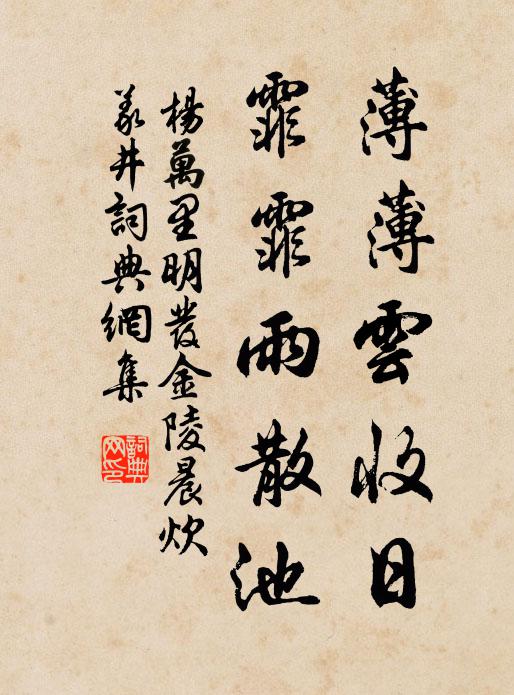 薄薄雲收日
霏霏雨散池
楊萬里明發金陵晨炊
義井詞典網集
詞典網印